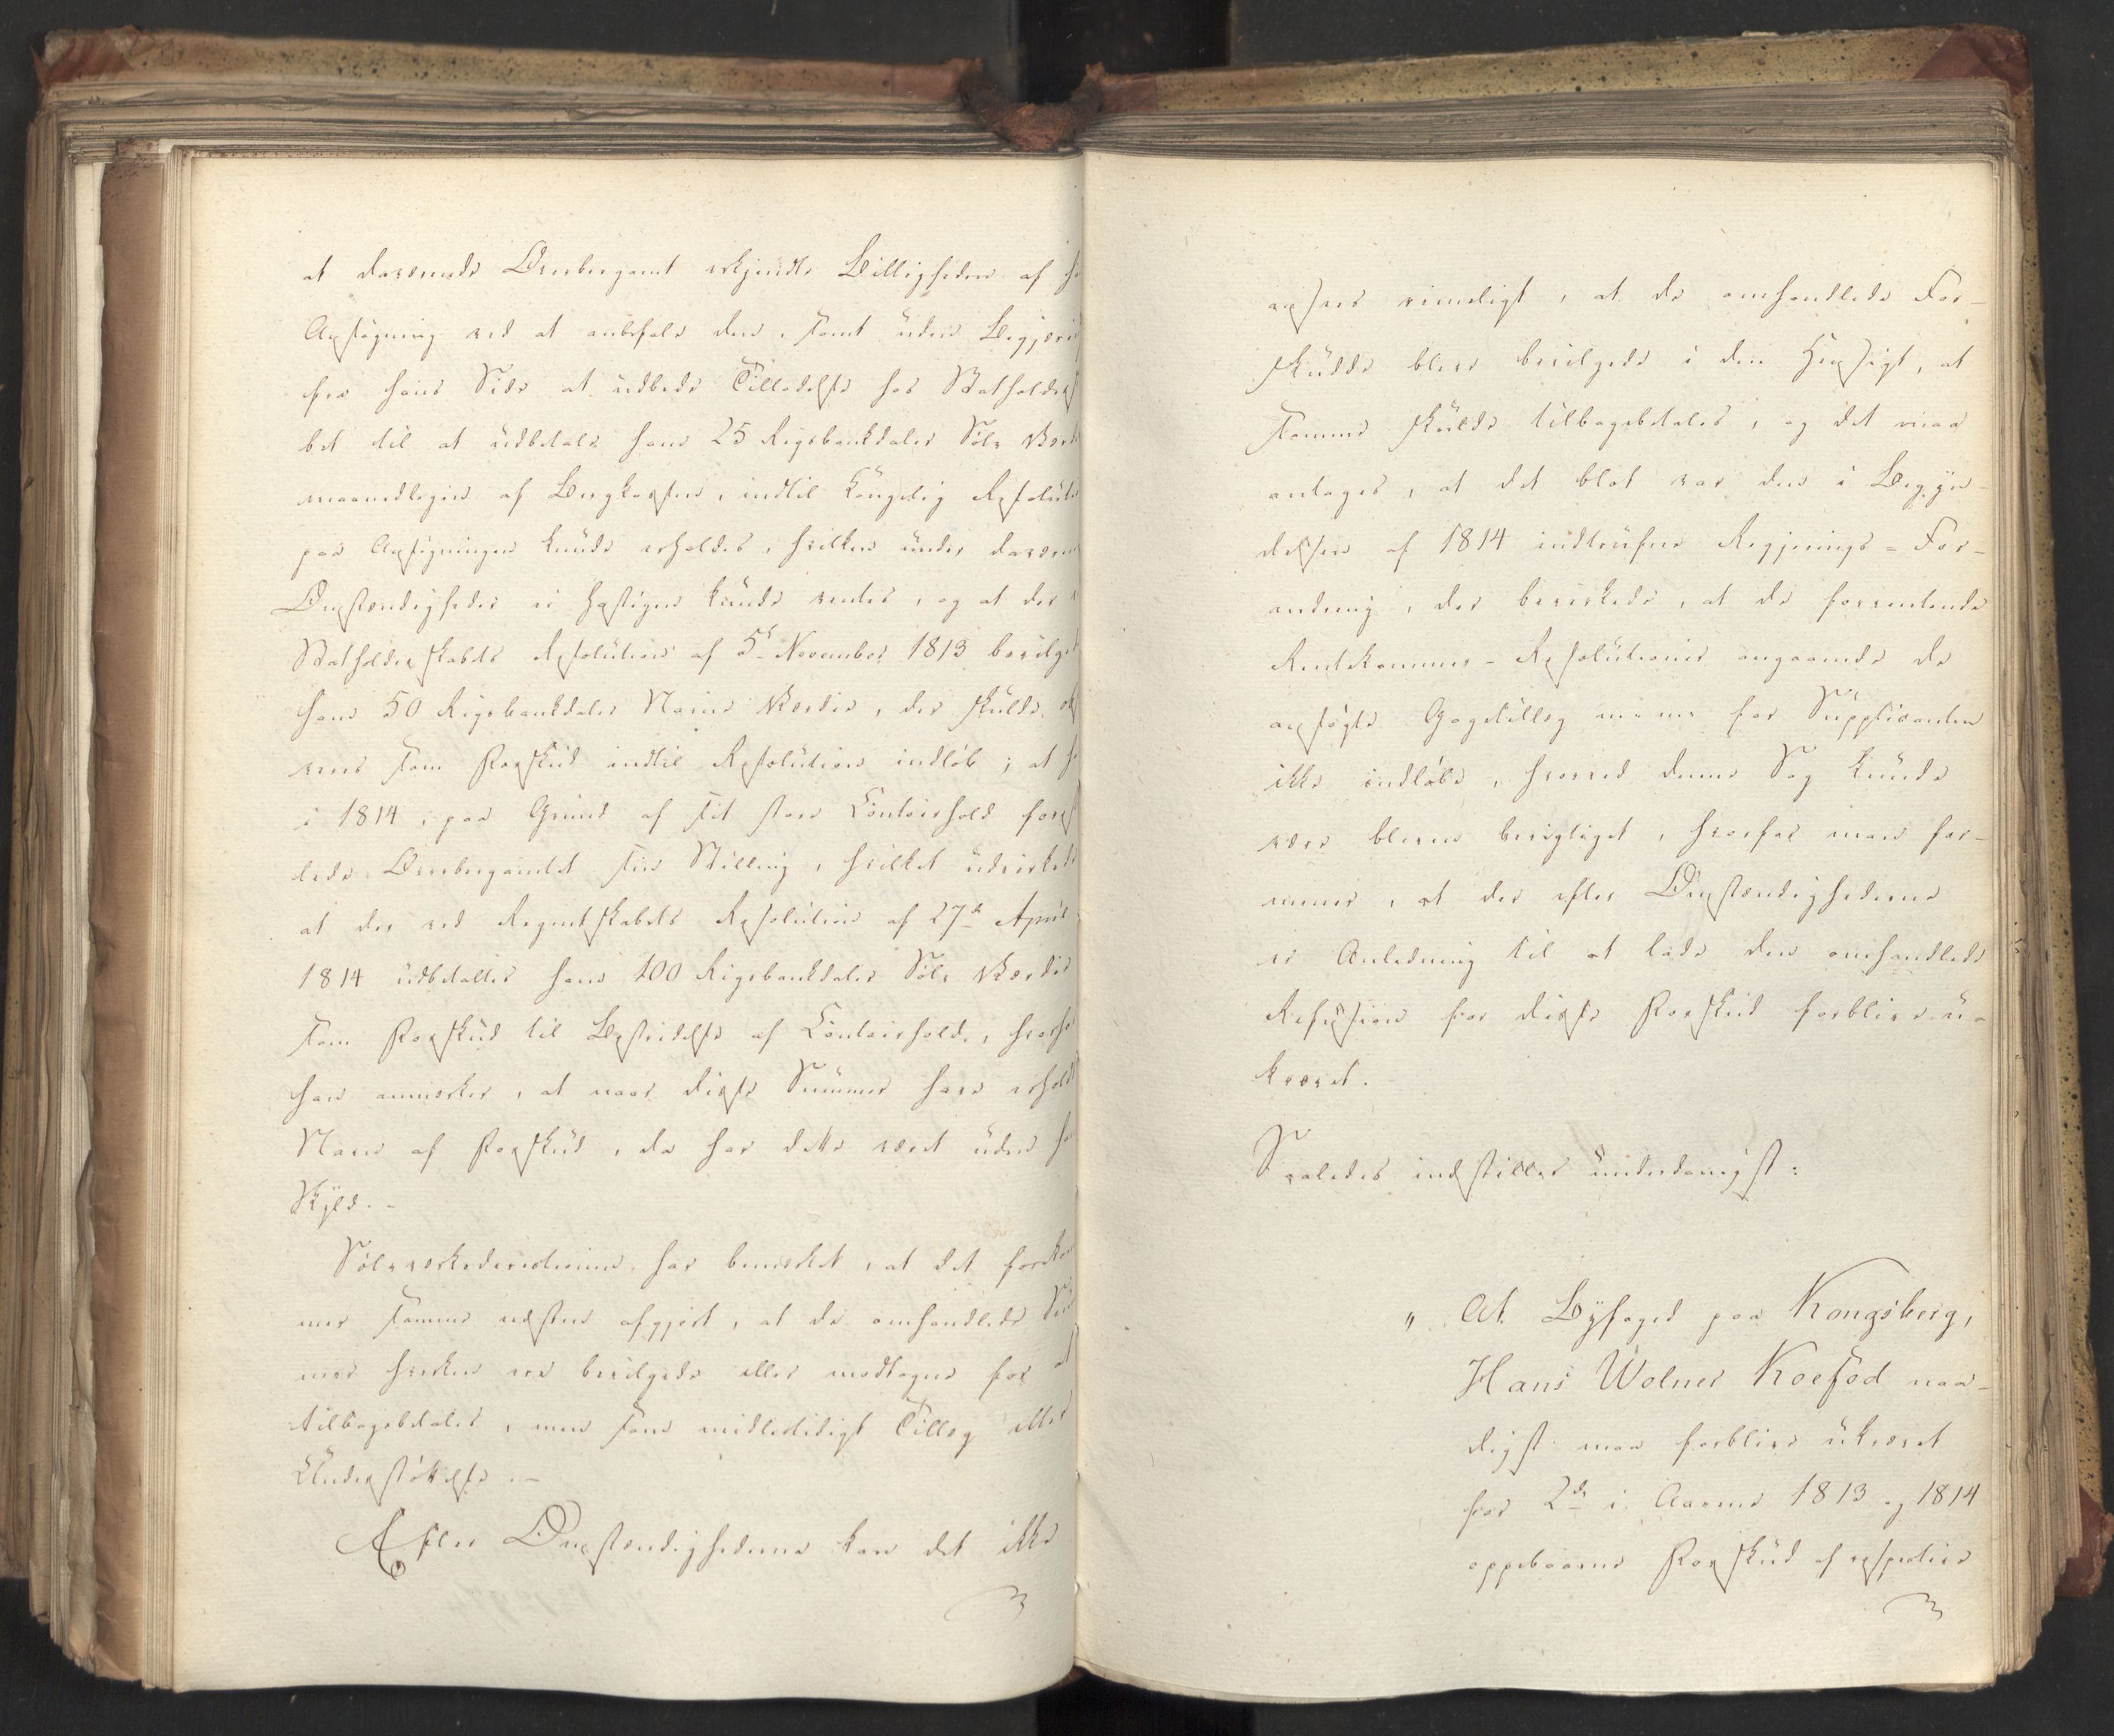 at daværende Overbergamt erkjendte Billigheden af
Ansøgning ved at anbefale den, samt uden Begjæri
fra hans Side at udbede Tilladelse hos Statholders
bet til at udbetale ham 25 Rigsbankdaler Sølv Værd
maanedligen af Bergkassen, indtil kongelig Resoluti
paa Ansøgningen kunde erholdes, hvilken under daværen
Omstændigheder ei hastigen kunde ventes, og at der
Statholderskabets Resolution af 5te November 1813 bevilge
ham 50 Rigsbankdaler Navne Værdie, der skulde
veres som Forskud indtil Resolution indløb; at
i 1814, paa Grund af sit store Contoirhold fores
lede Overbergamtet sin Stilling, hvilket udvirkede
at der ved Regentskabets Resolution af 27de April
1814 udbetaltes ham 100 Rigsbankdaler Sølv Værdie
som Forskud til Bestridelse af Contoirholdet,
han anmerker, at naar disse Summer have erholdt
Navn af Forskud, da har dette været uden
Skyld. -
Sølvværksdirectionen har bemerket, at det forekom
mer samme næsten afgjort, at de omhandlede Sum
mer hverken ere bevilgede eller modtagne for at
tilbagebetales, men som midlertidigt Tillæg eller
Understøttelse. -
Efter Omstændighederne kan det ikke
ansees rimeligt, at de omhandlede For-
skudde bleve bevilgede i den Hensigt, at
samme skulde tilbagebetales, og det maa
antages, at det blot var den i Begyn-
delsen af 1814 indtrufne Regjerings-For-
andring, der bevirkede, at de forventende
Rentekammer-Resolutioner angaaende de
ansøgte Gagetillæg m.m. for Supplicanten
ikke indløbe, hvorved denne Sag kunde
være bleven berigtiget, hvorfor man for-
mener, at der efter Omstændighederne
er Anledning til at lade den omhandlede
Refusion for disse Forskud forblive u-
krævet.
Saaledes indstilles underdanigst:
„ At Byfoged paa Kongsberg,
Hans Wølner Koefod naa-
digst maa forblive ukrævet
for 2de i Aarene 1813 og 1814
oppebaarne Forskud af respective